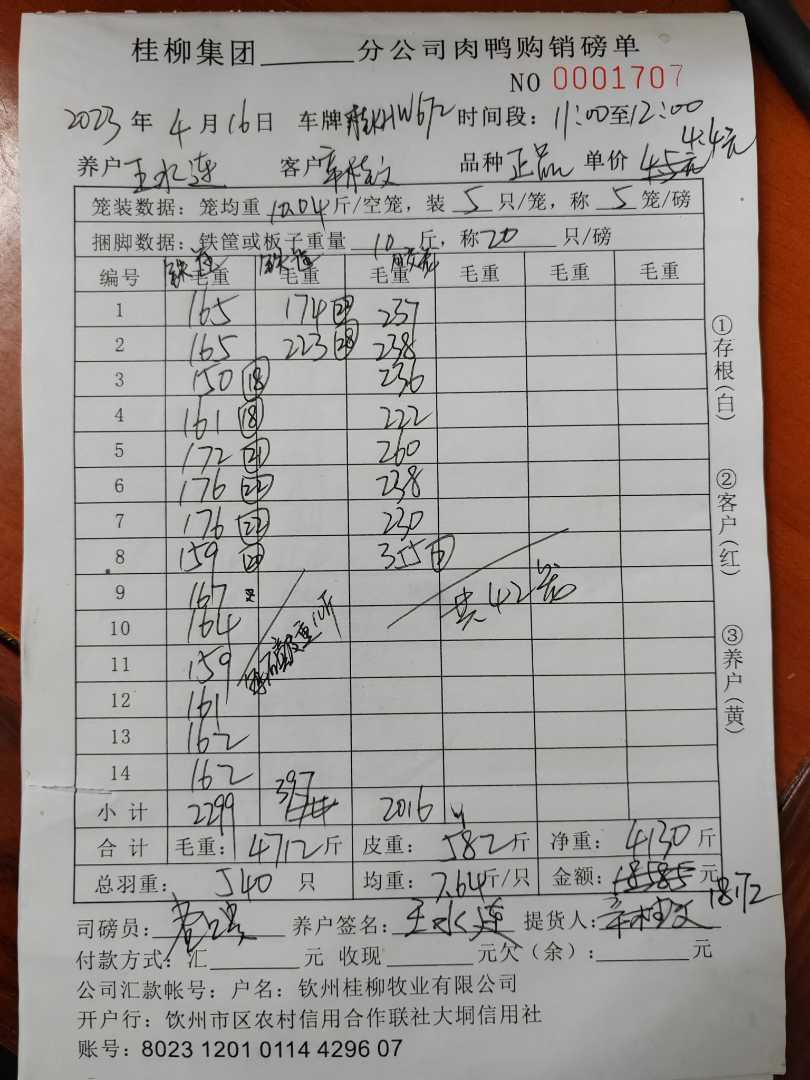 桂柳集团______分公司肉鸭购销磅单
NO 0001707
2023年4月16日 车牌 HW672 时间段：11:00至12:00
养户 王水连 客户 品种 正品 单价 4.5元 4.4元
笼装数据：笼均重 10.04 斤/空笼，装 5 只/笼，称 5 笼/磅
捆脚数据：铁筐或板子重量 10 斤，称 20 只/磅
铁筐 铁筐
编号 毛重 毛重 毛重 毛重 毛重 毛重
1 165 174 237
2 165 223 28 238
3 150 18 236
4 161 18 222
5 172 21 260
6 176 22 238
7 176 22 230
8 159 20 355
9 167
10 164 共42笼
11 159
12 161
13 162
14 162
小计 2299 397 2016
合计 毛重：4712斤 皮重：582斤 净重：4130斤
总羽重：540 只 均重：7.64斤/只 金额：18585元
18172
司磅员： 养户签名：王水连 提货人：
付款方式：汇______元 收现______元欠（余）：______元
公司汇款帐号：户名：钦州桂柳牧业有限公司
开户行：饮州市区农村信用合作联社大垌信用社
账号：8023 1201 0114 4296 07
①存根（白）
②客户（红）
③养户（黄）